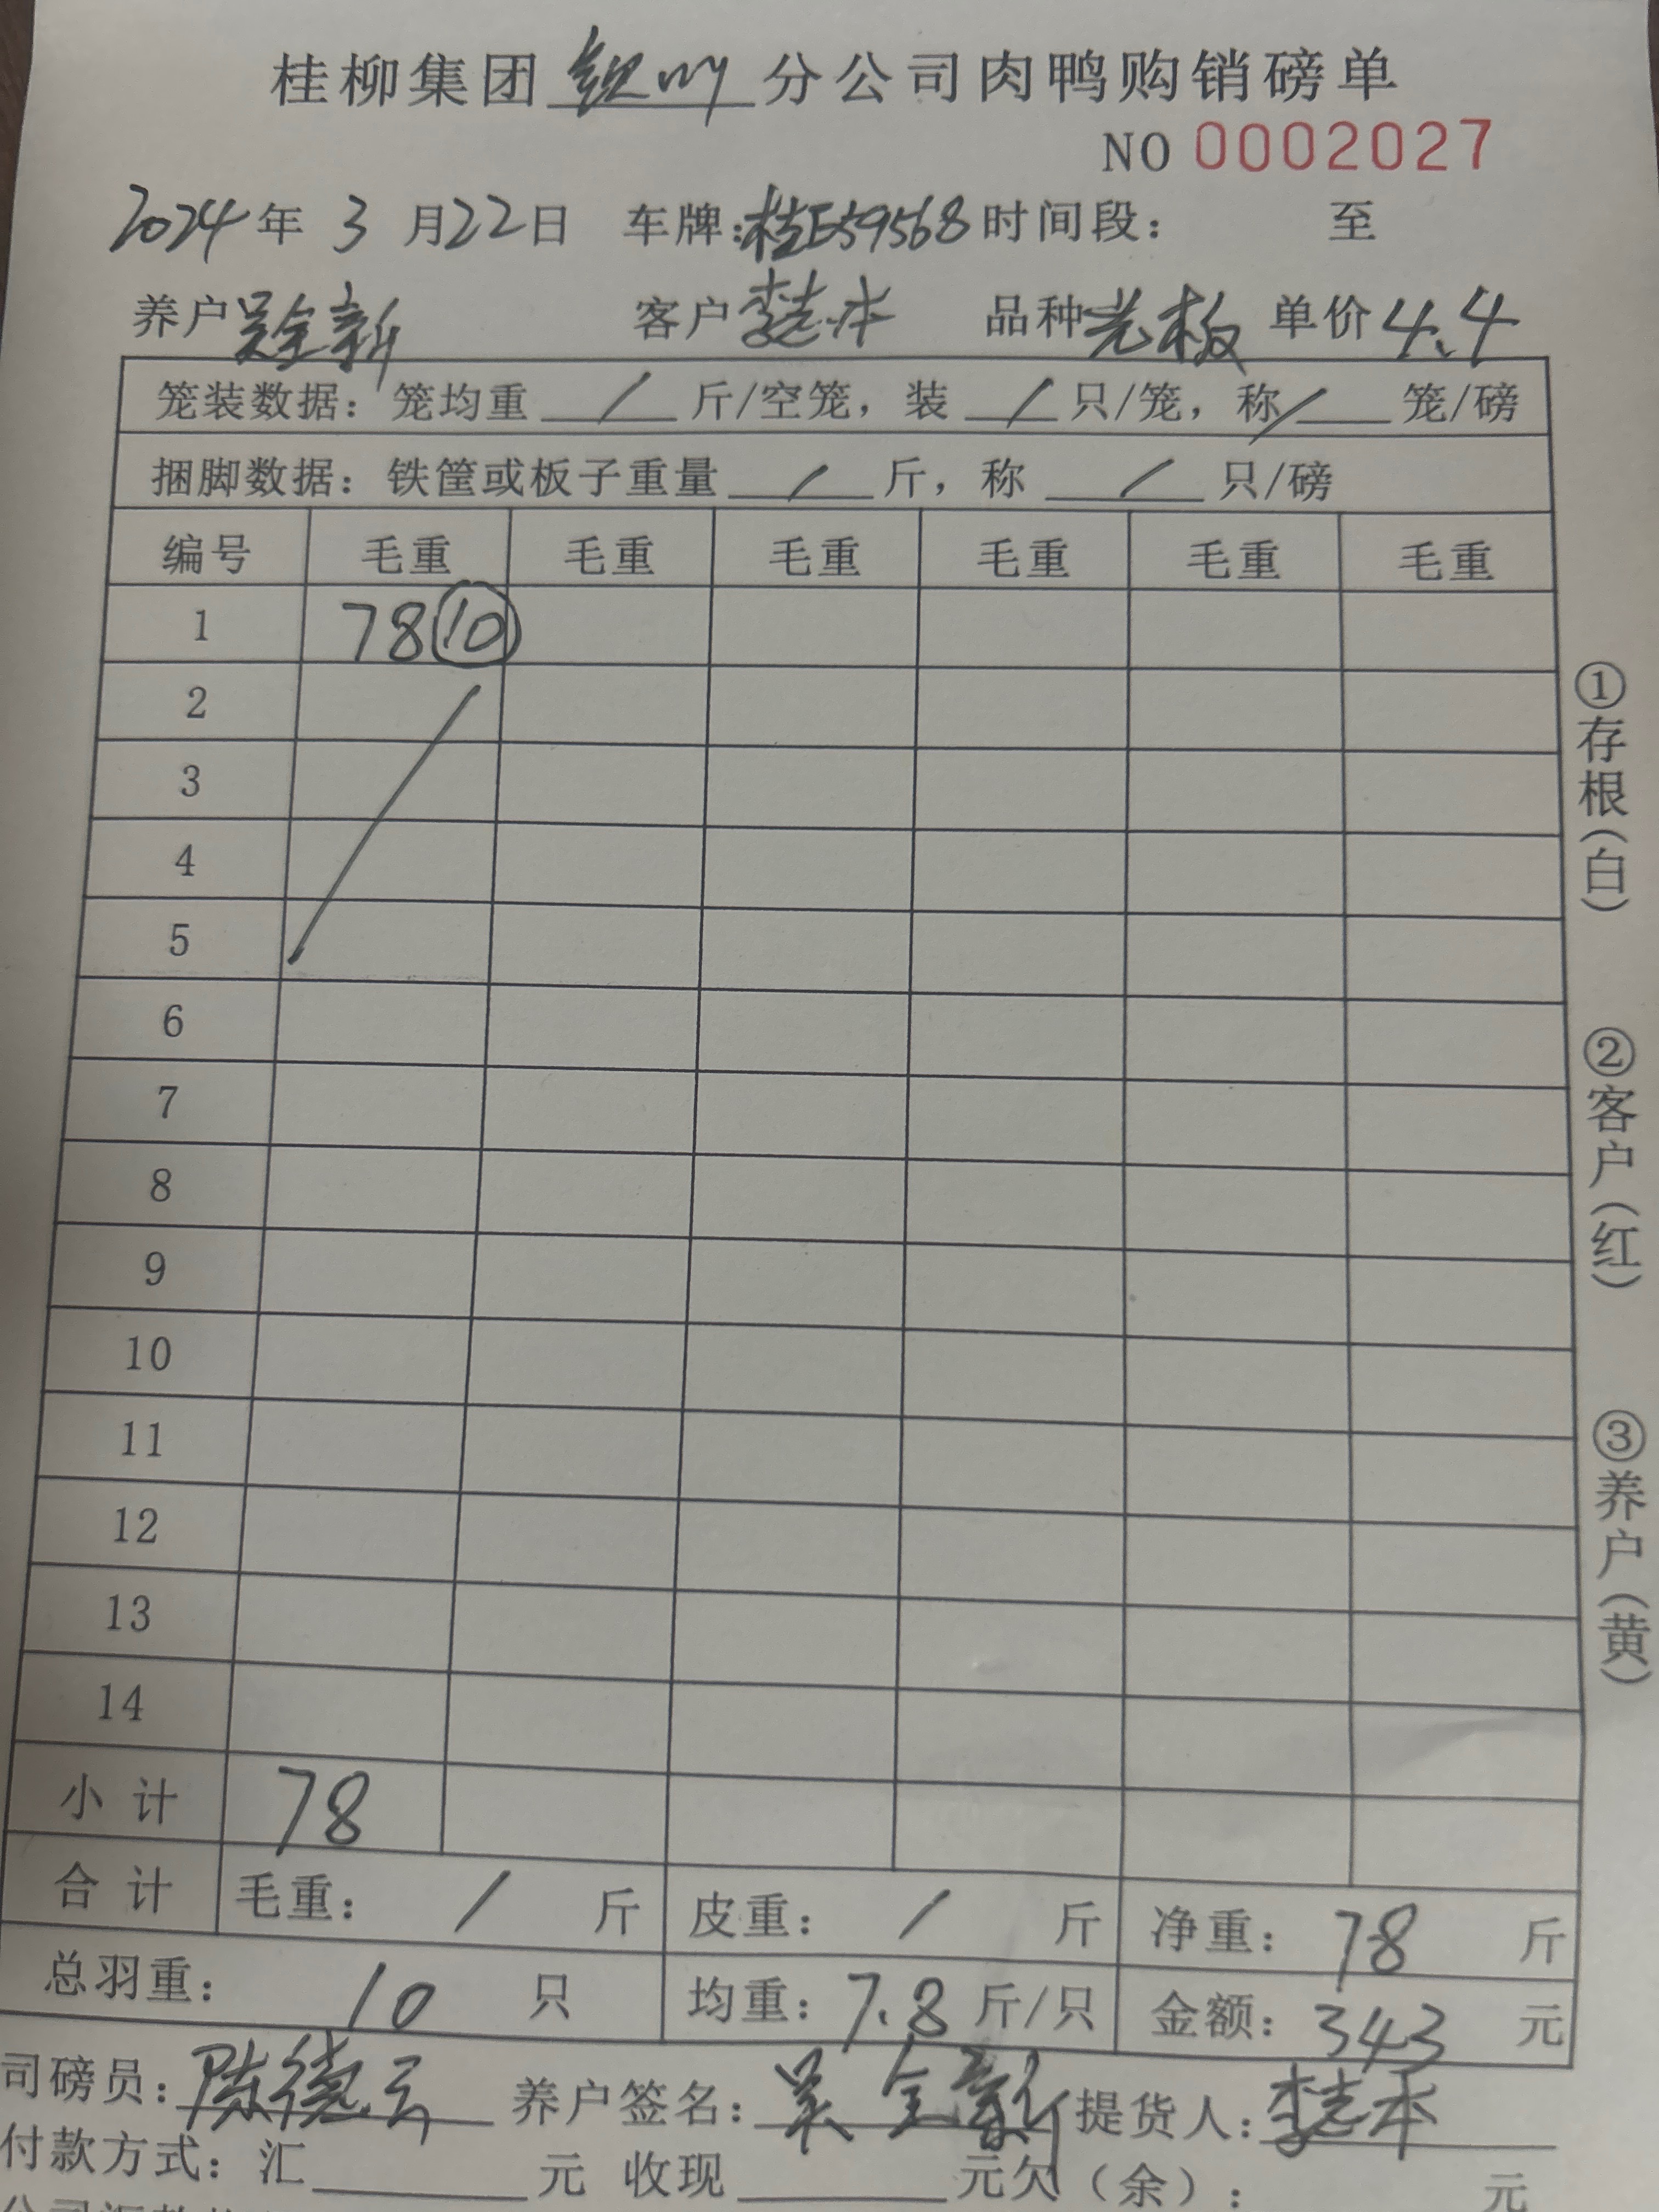 桂柳集团钦州分公司肉鸭购销磅单
NO 0002027
2024年 3 月22日 车牌:桂E59568 时间段: 至
养户 吴全新 客户 李志本 品种 光板 单价 4.4
笼装数据: 笼均重 / 斤/空笼, 装 / 只/笼, 称 / 笼/磅
捆脚数据: 铁筐或板子重量 / 斤, 称 / 只/磅
编号 毛重 毛重 毛重 毛重 毛重 毛重
1 78 ⑩
2
3
4
5
6
7
8
9
10
11
12
13
14
小计 78
合计 毛重: / 斤 皮重: / 斤 净重: 78 斤
总羽重: 10 只 均重: 7.8 斤/只 金额: 343 元
司磅员: 陈德云 养户签名: 吴全新 提货人: 李志本
付款方式: 汇 元 收现 元欠(余): 元
①存根(白)
②客户(红)
③养户(黄)